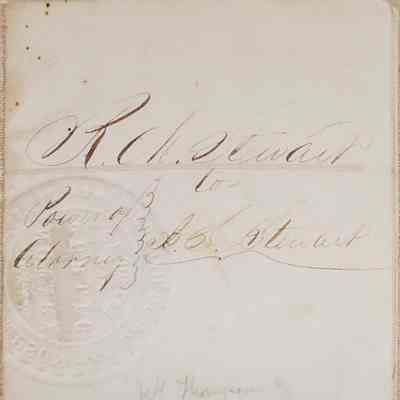 R. M. Stewart
to
Power of
Attorney
Stewart
Thompson